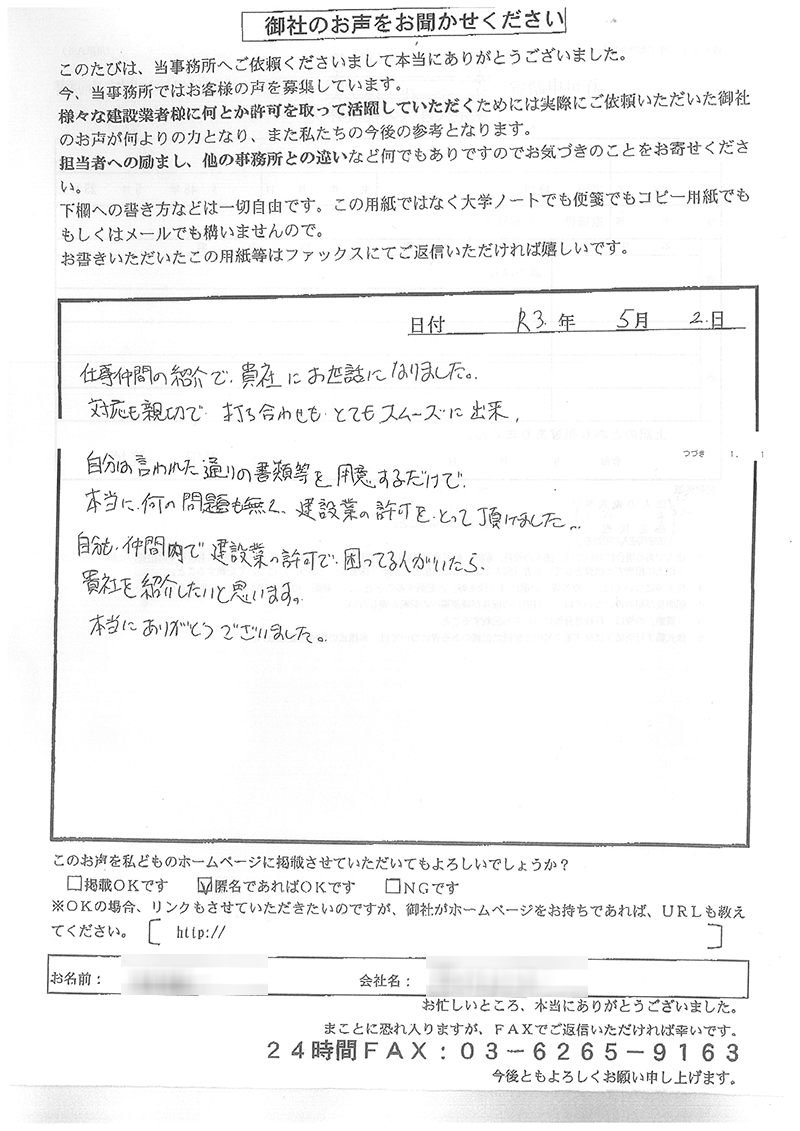 御社のお声をお聞かせください
このたびは、当事務所へご依頼くださいまして本当にありがとうございました。
今、当事務所ではお客様の声を募集しています。
様々な建設業者様に何とか許可を取って活躍していただくためには実際にご依頼いただいた御社
のお声が何よりの力となり、また私たちの今後の参考となります。
担当者への励まし、他の事務所との違いなど何でもありですのでお気づきのことをお寄せくださ
い。
下欄への書き方などは一切自由です。この用紙ではなく大学ノートでも便箋でもコピー用紙でも
もしくはメールでも構いませんので。
お書きいただいたこの用紙等はファックスにてご返信いただければ嬉しいです。
日付 R3.年 5月 2.日
仕事仲間の紹介で、貴社にお世話になりました。
対応も親切で、打ち合わせも、とてもスムーズに出来、
つづき 1. 1
自分は言われた通りの書類等を用意するだけで、
本当に、何の問題も無く、建設業の許可を、とって頂けました。
自分も、仲間内で建設業の許可で、困ってる人がいたら、
貴社を紹介したいと思います。
本当にありがとうございました。
このお声を私どものホームページに掲載させていただいてもよろしいでしょうか？
□掲載ＯＫです ☑匿名であればＯＫです □ＮＧです
※ＯＫの場合、リンクもさせていただきたいのですが、御社がホームページをお持ちであれば、ＵＲＬも教え
てください。 [ http:// ]
お名前： 会社名：
お忙しいところ、本当にありがとうございました。
まことに恐れ入りますが、ＦＡＸでご返信いただければ幸いです。
２４時間ＦＡＸ：０３－６２６５－９１６３
今後ともよろしくお願い申し上げます。